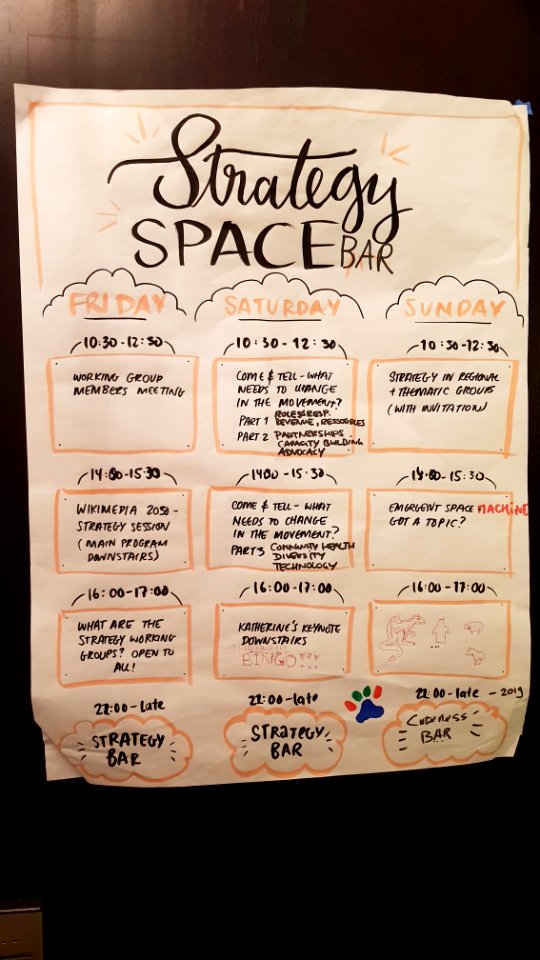 Strategy
SPACE BAR
FRIDAY
10:30-12:30
WORKING GROUP
MEMBERS MEETING
14:00-15:30
WIKIMEDIA 2030 -
STRATEGY SESSION
(MAIN PROGRAM
DOWNSTAIRS)
16:00-17:00
WHAT ARE THE
STRATEGY WORKING
GROUPS? OPEN TO
ALL!
22:00-late
STRATEGY
BAR
SATURDAY
10:30-12:30
COME & TELL - WHAT
NEEDS TO CHANGE
IN THE MOVEMENT?
PART 1 ROLES & RESP.
REVENUE, RESSOURCES
PART 2 PARTNERSHIPS
CAPACITY BUILDING
ADVOCACY
1400-15:30
COME & TELL - WHAT
NEEDS TO CHANGE
IN THE MOVEMENT?
PART 3 COMMUNITY HEALTH
DIVERSITY
TECHNOLOGY
16:00-17:00
KATHERINE'S KEYNOTE
DOWNSTAIRS
BINGO!!!
22:00-late
STRATEGY
BAR
SUNDAY
10:30-12:30
STRATEGY IN REGIONAL
+ THEMATIC GROUPS
(WITH INVITATION)
14:00-15:30
EMERGENT SPACE MACHINE
GOT A TOPIC?
16:00-17:00
22:00-late - 2019
CUTENESS
BAR